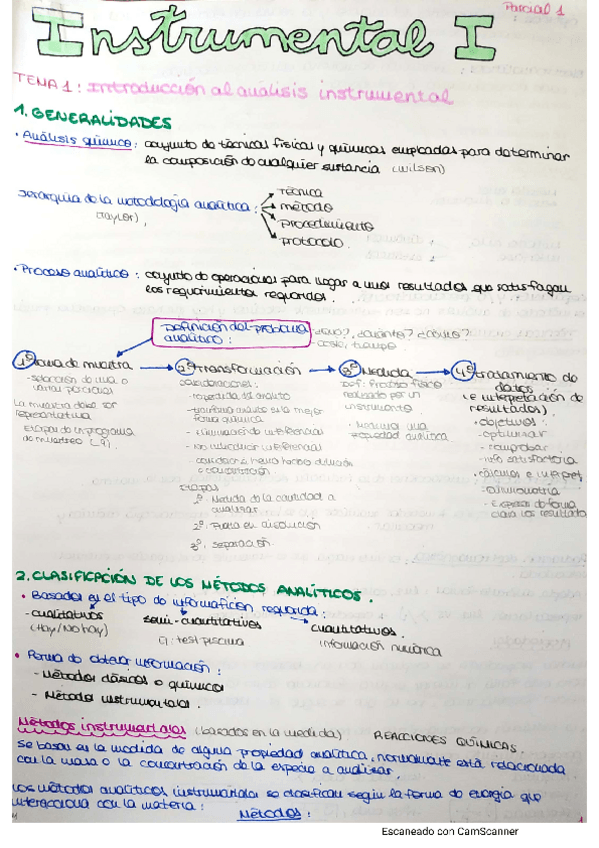 Parcial 1
Instrumental I
TEMA 1: Introducción al análisis instrumental
1. GENERALIDADES
· Análisis químico: conjunto de técnicas físicas y químicas empleadas para determinar
la composición de cualquier sustancia (Wilson)
Jerarquía de la metodología analítica:
(Taylor),
Técnica
método
procedimiento
protocolo.
· Proceso analítico: conjunto de operaciones para llegar a unos resultados que satisfagan
los requerimientos requeridos.
Definición del problema
analítico:
¿Qué?, ¿cuánto? ¿cómo?
- coste, tiempo
1º Toma de muestra
- selección de una o
varias porciones
La muestra debe ser
representativa
Etapas de un programa
de muestreo
2º Transformación
consideraciones:
- no perdida del analito
- transforma analito en la mejor
forma química
- eliminación de interferencias
- No introducir interferencias
- considerar si hemos hecho dilución
o concentración.
Etapas
1º. Medida de la cantidad a
analizar
2º. Puesta en disolución
3º. separación.
3º Medida
Def: Proceso físico
realizado por un
instrumento
· Medimos una
propiedad analítica
4º tratamiento de
datos
(e interpretación de
resultados).
· objetivos:
- optimizar
- comprobar
- info satisfactoria
· cálculos e interpret.
- quimiometría
- Expresar de forma
clara los resultados
2. CLASIFICACIÓN DE LOS MÉTODOS ANALÍTICOS.
· Basados en el tipo de información requerida:
- cualitativos
(Hay/No hay)
semi-cuantitativos
Ej: test piscina
cuantitativos.
información numérica
· Forma de obtener información:
- Métodos clásicos o químicos
- Métodos instrumentales.
Métodos instrumentales (basados en la medida) REACCIONES QUÍMICAS.
Se basan en la medida de alguna propiedad analítica, normalmente está relacionada
con la masa o la concentración de la especie a analizar.
Los métodos analíticos instrumentales se clasifican según la forma de energía que
interacciona con la materia:
Métodos:
1
Escaneado con CamScanner